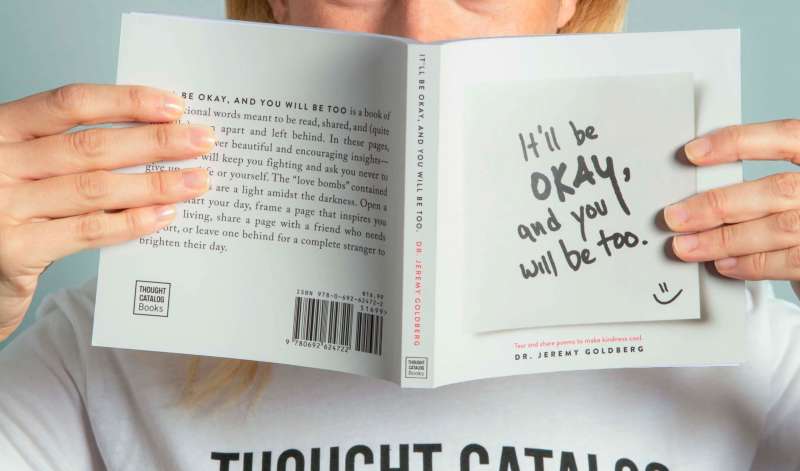 BE OKAY, AND YOU WILL BE TOO is a book of
words meant to be read, shared, and (quite
apart and left behind. In these pages,
beautiful and encouraging insights—
will keep you fighting and ask you never to
or yourself. The “love bombs” contained
are a light amidst the darkness. Open a
your day, frame a page that inspires you
living, share a page with a friend who needs
or leave one behind for a complete stranger to
brighten their day.
THOUGHT
CATALOG
Books
ISBN 978-0-692-62472-2
$16.99
51699>
9 780692 624722
IT'LL BE OKAY, AND YOU WILL BE TOO. DR. JEREMY GOLDBERG
THOUGHT
CATALOG
Books
It'll be
OKAY,
and you
will be too.
Tear and share poems to make kindness cool.
DR. JEREMY GOLDBERG
THOUGHT CATALOG